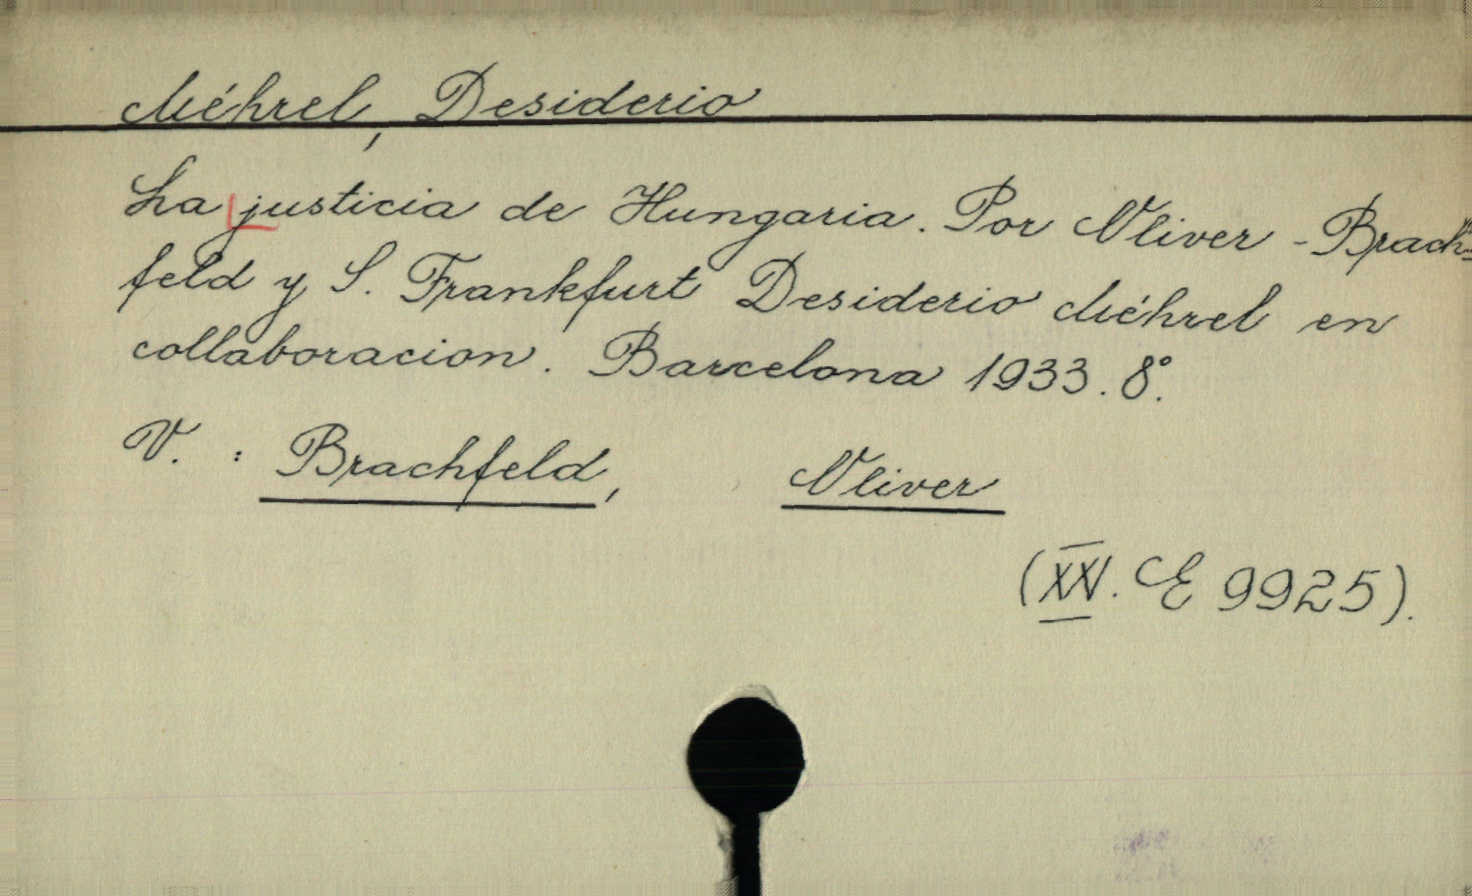 Méhrel, Desiderio
La justicia de Hungaria. Por Oliver - Brach-
feld y S. Frankfurt Desiderio Méhrel en
collaboracion. Barcelona 1933. 8°.
V. : Brachfeld, Oliver
(XX. E 9925).